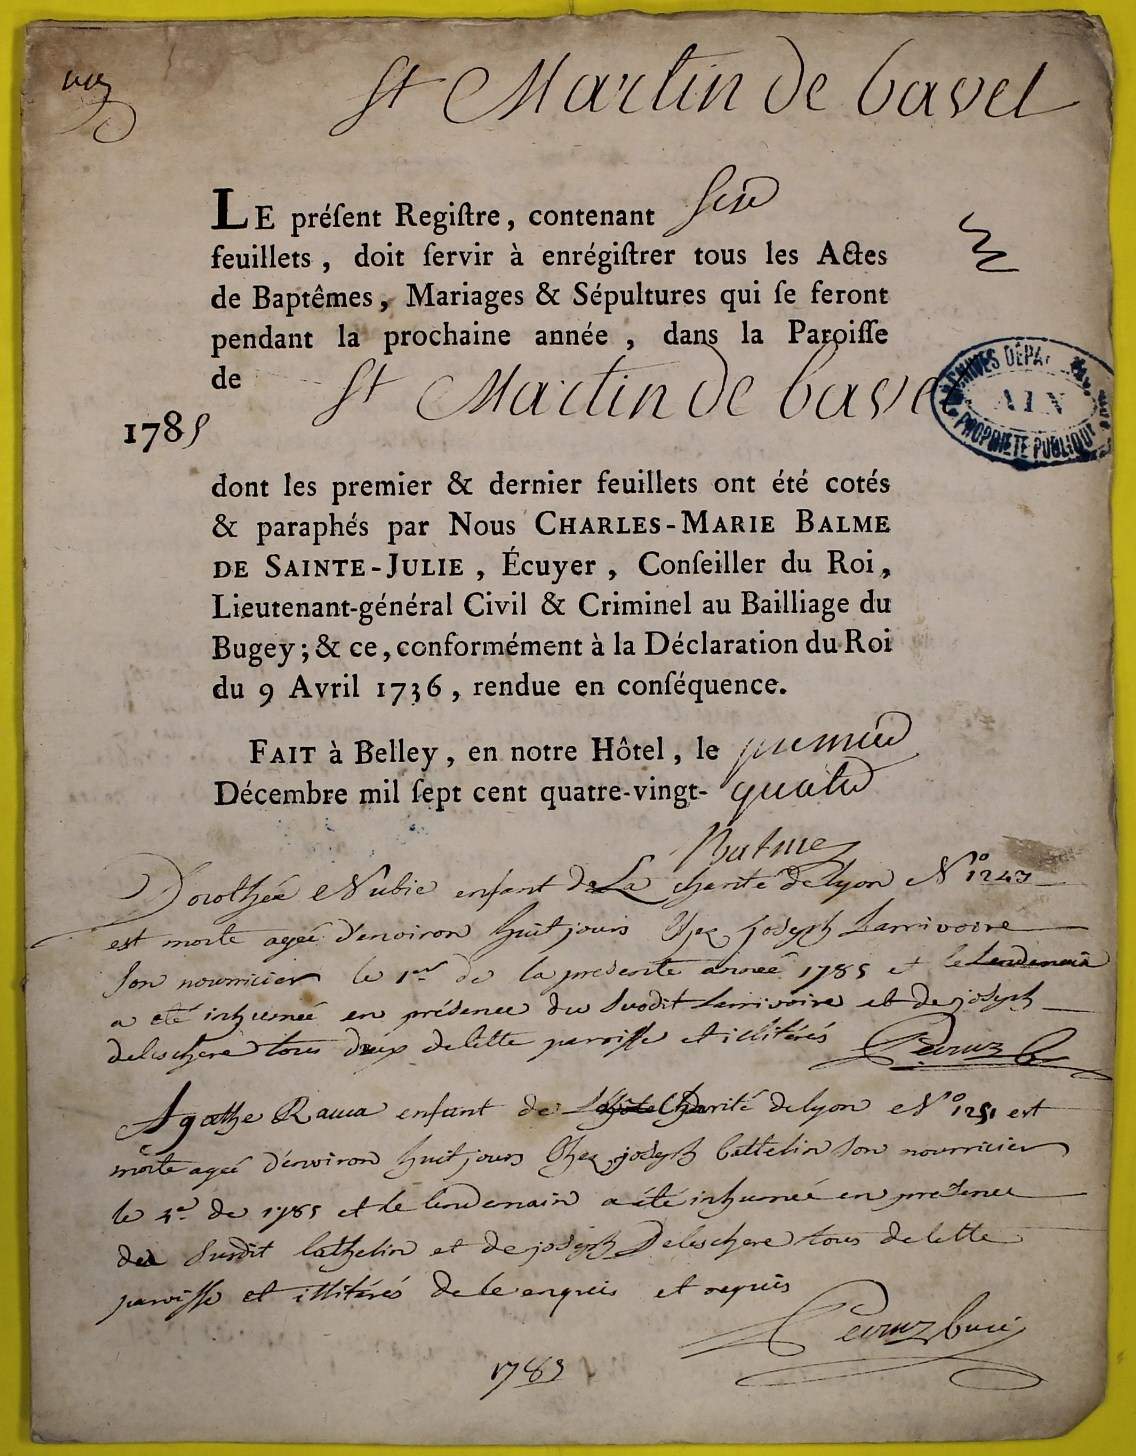 St Martin de bavel
LE préſent Regiſtre, contenant
feuillets, doit ſervir à enrégiſtrer tous les Actes
de Baptêmes, Mariages & Sépultures qui ſe feront
pendant la prochaine année, dans la Paroiſſe
de St Martin de bavel
1785
ARCHIVES DÉPA
AIN
PROPRIÉTÉ PUBLIQUE
dont les premier & dernier feuillets ont été cotés
& paraphés par Nous CHARLES-MARIE BALME
DE SAINTE-JULIE, Écuyer, Conſeiller du Roi,
Lieutenant-général Civil & Criminel au Bailliage du
Bugey; & ce, conformément à la Déclaration du Roi
du 9 Avril 1736, rendue en conſéquence.
FAIT à Belley, en notre Hôtel, le premier
Décembre mil ſept cent quatre-vingt-quatre
Balme
Dorothée Nubie enfant de La charité de lyon N° 1243
est morte agée d'environ huit jours chez joseph Larrivoire
son nourricier le 1er de la presente année 1785 et le lendemain
a eté inhumée en présence du susdit Larrivoire et de joseph
deleschere tous deux de cette paroisse et illitérés
Agathe Rama enfant de charité de lyon N° 1251 est
morte agée d'environ huit jours chez joseph Cattelin son nourricier
le 4e de 1785 et le lendemain a été inhumée en presence
du susdit Cathelin et de joseph Deleschere tous de cette
paroisse et illitérés de ce enquis et requis
1785